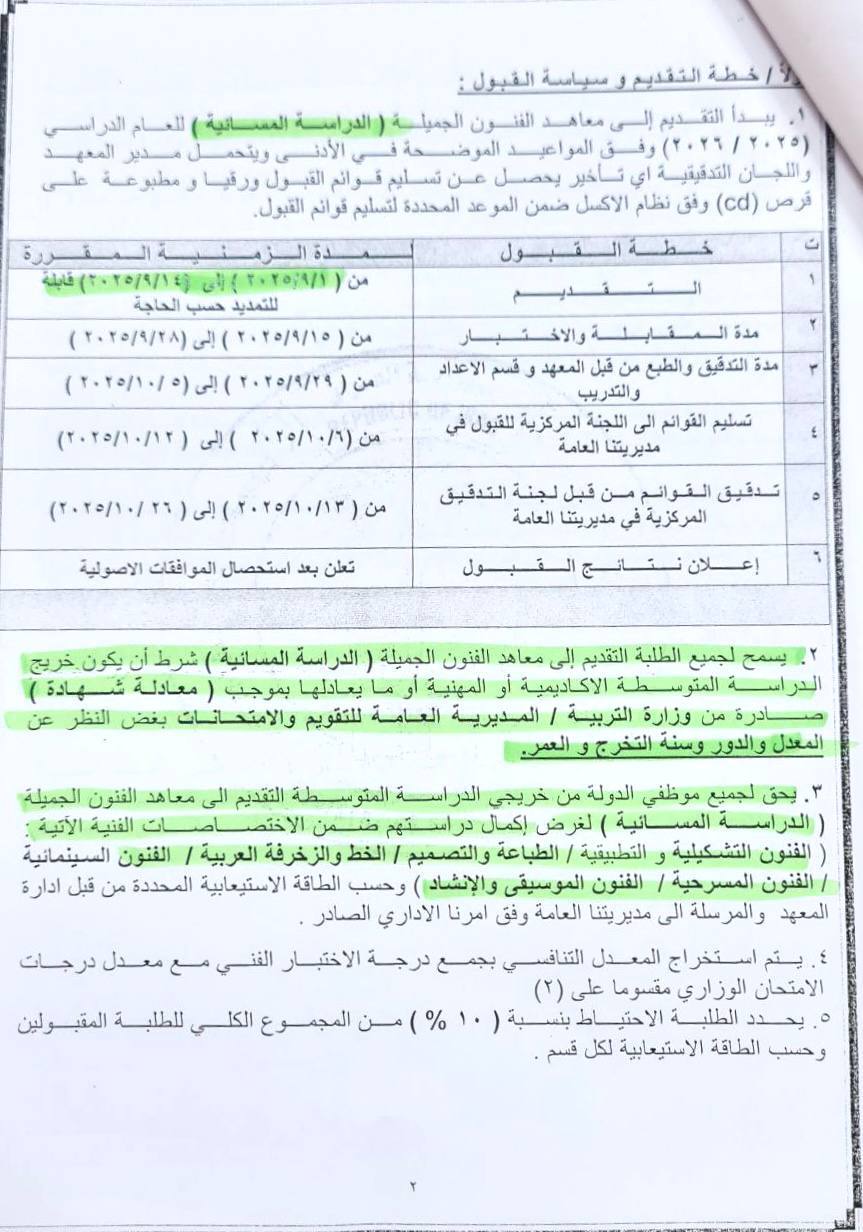 أولاً / خطة التقديم و سياسة القبول :
١. يبدأ التقديم إلى معاهد الفنون الجميلة ( الدراسة المسائية ) للعام الدراسي
(٢٠٢٥ / ٢٠٢٦) وفق المواعيد الموضحة في الأدنى ويتحمل مدير المعهد
واللجان التدقيقية اي تأخير يحصل عن تسليم قوائم القبول ورقيا و مطبوعة على
قرص (cd) وفق نظام الاكسل ضمن الموعد المحددة لتسليم قوائم القبول.
ت خطة القبول المدة الزمنية المقررة
١ التقديم من ( ٢٠٢٥/٩/١ ) إلى (٢٠٢٥/٩/١٤) قابلة
للتمديد حسب الحاجة
٢ مدة المقابلة والاختبار من ( ٢٠٢٥/٩/١٥ ) إلى (٢٠٢٥/٩/٢٨ )
٣ مدة التدقيق والطبع من قبل المعهد و قسم الاعداد
والتدريب من ( ٢٠٢٥/٩/٢٩ ) إلى (٢٠٢٥/١٠/٥ )
٤ تسليم القوائم الى اللجنة المركزية للقبول في
مديريتنا العامة من (٢٠٢٥/١٠/٦ ) إلى ( ٢٠٢٥/١٠/١٢)
٥ تدقيق القوائم من قبل لجنة التدقيق
المركزية في مديريتنا العامة من ( ٢٠٢٥/١٠/١٣ ) إلى ( ٢٠٢٥/١٠/٢٦)
٦ إعلان نتائج القبول تعلن بعد استحصال الموافقات الاصولية
٢. يسمح لجميع الطلبة التقديم إلى معاهد الفنون الجميلة ( الدراسة المسائية ) شرط أن يكون خريج
الدراسة المتوسطة الاكاديمية أو المهنية أو ما يعادلها بموجب ( معادلة شهادة )
صادرة من وزارة التربية / المديرية العامة للتقويم والامتحانات بغض النظر عن
المعدل والدور وسنة التخرج و العمر.
٣. يحق لجميع موظفي الدولة من خريجي الدراسة المتوسطة التقديم الى معاهد الفنون الجميلة
( الدراسة المسائية ) لغرض إكمال دراستهم ضمن الاختصاصات الفنية الآتية :
( الفنون التشكيلية و التطبيقية / الطباعة والتصميم / الخط والزخرفة العربية / الفنون السينمائية
/ الفنون المسرحية / الفنون الموسيقى والإنشاد ) وحسب الطاقة الاستيعابية المحددة من قبل ادارة
المعهد والمرسلة الى مديريتنا العامة وفق امرنا الاداري الصادر .
٤. يتم استخراج المعدل التنافسي بجمع درجة الاختبار الفني مع معدل درجات
الامتحان الوزاري مقسوما على (٢)
٥. يحدد الطلبة الاحتياط بنسبة ( ١٠ % ) من المجموع الكلي للطلبة المقبولين
وحسب الطاقة الاستيعابية لكل قسم .
٢